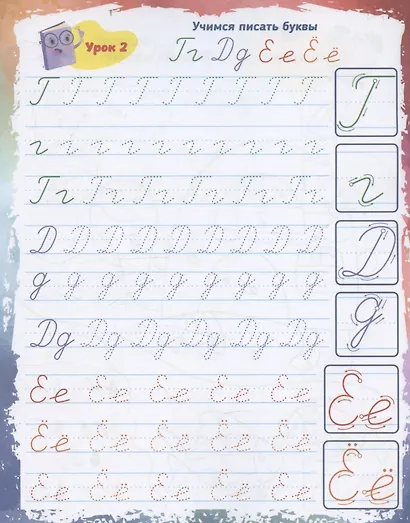 Учимся писать буквы
Урок 2
Гг Дд Ее Ёё
Г Г Г Г Г Г Г Г Г
Г
г г г г г г г г г г г г
г
Гг Гг Гг Гг Гг Гг
Д Д Д Д Д Д Д Д Д
Д
д д д д д д д д д
д
Дд Дд Дд Дд Дд Дд
Ее Ее Ее Ее Ее Ее
Ее
Ёё Ёё Ёё Ёё Ёё Ёё
Ёё Ёё Ёё Ёё Ёё Ёё
Ёё